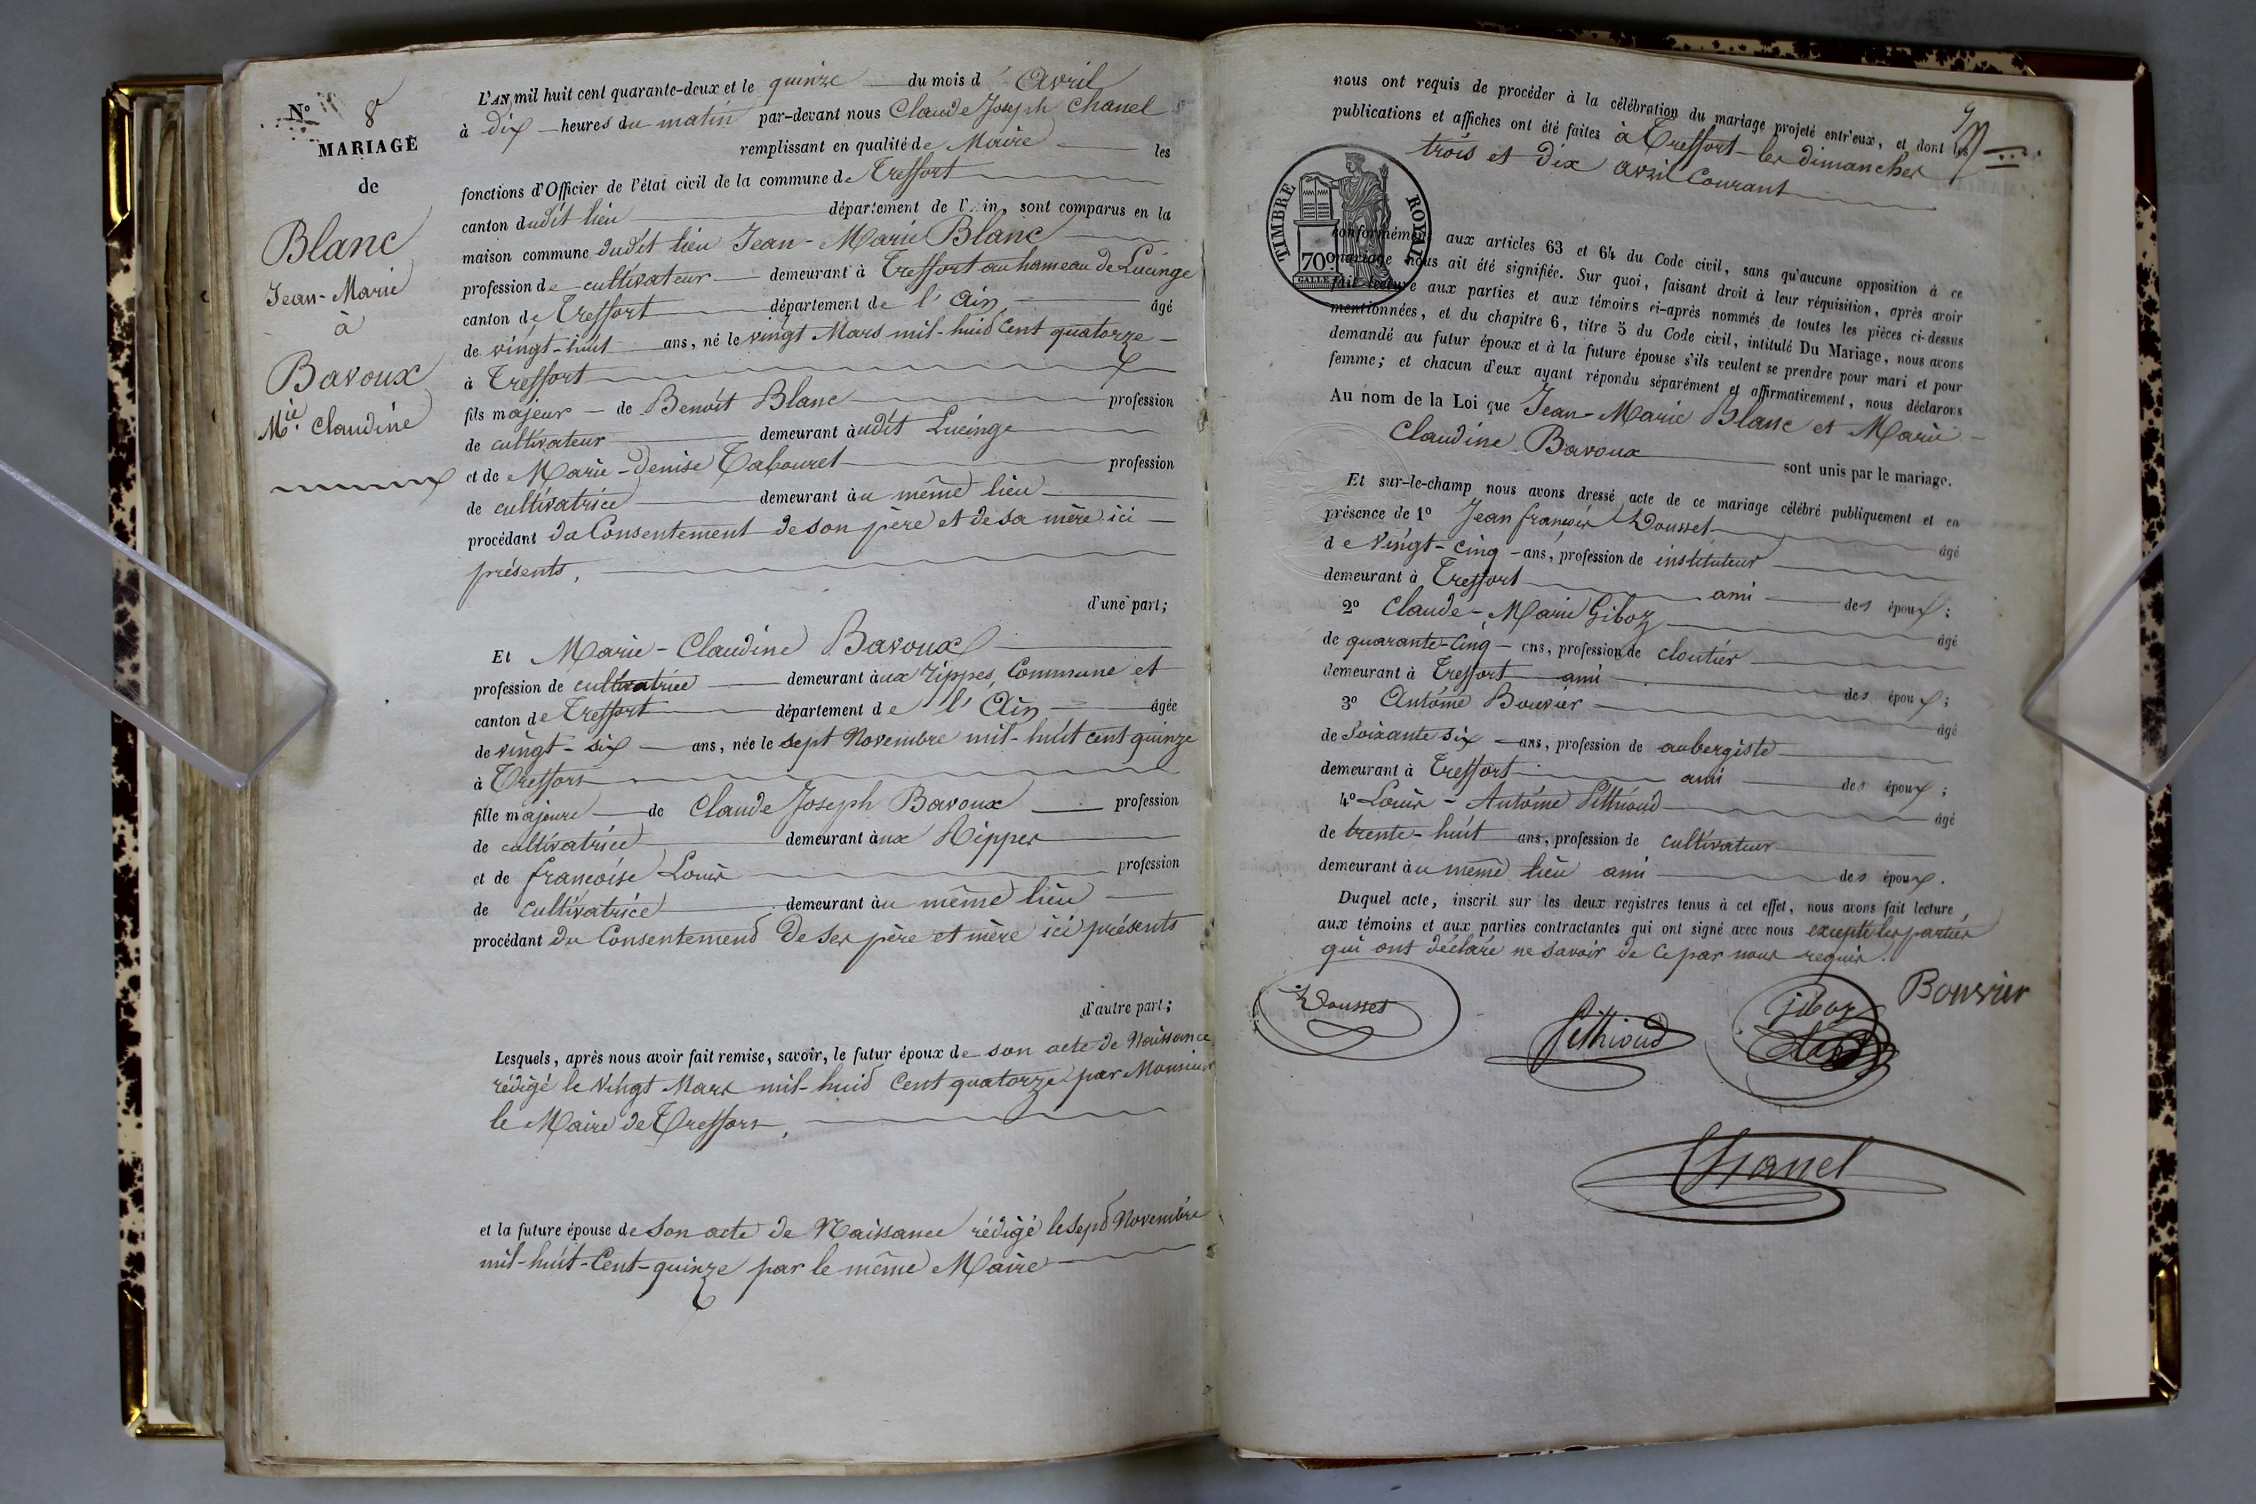 N.o 8
MARIAGE
de
Blanc
Jean-Marie
à
Bavoux
M.ie Claudine
L'AN mil huit cent quarante-deux et le quinze du mois d'Avril
à dix heures du matin par-devant nous Claude Joseph Chanel
remplissant en qualité de Maire les
fonctions d'Officier de l'état civil de la commune de Treffort
canton dudit lieu département de l'Ain, sont comparus en la
maison commune dudit lieu Jean-Marie Blanc
profession de cultivateur demeurant à Treffort au hameau de Lucinge
canton de Treffort département de l'Ain âgé
de vingt-huit ans, né le vingt Mars mil-huit cent quatorze
à Treffort
fils majeur de Benoît Blanc profession
de cultivateur demeurant audit Lucinge
et de Marie-Denise Tabouret profession
de cultivatrice demeurant au même lieu
procédant du Consentement de son père et de sa mère ici
présents,
d'une part;
Et Marie-Claudine Bavoux
profession de cultivatrice demeurant aux rippes, Commune et
canton de Treffort département de l'Ain âgée
de vingt-six ans, née le sept Novembre mil-huit cent quinze
à Treffort
fille majeure de Claude Joseph Bavoux profession
de cultivatrice demeurant aux Rippes
et de françoise Louis profession
de cultivatrice demeurant au même lieu
procédant du Consentement de ses père et mère ici présents
d'autre part;
Lesquels, après nous avoir fait remise, savoir, le futur époux de son acte de Naissance
rédigé le vingt Mars mil-huit Cent quatorze par Monsieur
le Maire de Treffort,
et la future épouse de son acte de Naissance rédigé le sept Novembre
mil-huit-Cent-quinze par le même Maire
nous ont requis de procéder à la célébration du mariage projeté entr'eux, et dont les
publications et affiches ont été faites à Treffort les dimanches
trois et dix avril Courant
TIMBRE ROYAL
70c
conformément aux articles 63 et 64 du Code civil, sans qu'aucune opposition à ce
mariage nous ait été signifiée. Sur quoi, faisant droit à leur réquisition, après avoir
fait lecture aux parties et aux témoins ci-après nommés de toutes les pièces ci-dessus
mentionnées, et du chapitre 6, titre 5 du Code civil, intitulé Du Mariage, nous avons
demandé au futur époux et à la future épouse s'ils veulent se prendre pour mari et pour
femme; et chacun d'eux ayant répondu séparément et affirmativement, nous déclarons
Au nom de la Loi que Jean-Marie Blanc et Marie
Claudine Bavoux sont unis par le mariage.
Et sur-le-champ nous avons dressé acte de ce mariage célébré publiquement et en
présence de 1o Jean françois Dousset âgé
de Vingt-Cinq ans, profession de instituteur
demeurant à Treffort ami des époux;
2o Claude-Marie Giboz âgé
de quarante-Cinq ans, profession de cloutier
demeurant à Treffort ami des époux;
3o Antoine Bouvier âgé
de Soixante six ans, profession de aubergiste
demeurant à Treffort ami des époux;
4o Louis-Antoine Péthioud âgé
de trente-huit ans, profession de cultivateur
demeurant au même lieu ami des époux.
Duquel acte, inscrit sur les deux registres tenus à cet effet, nous avons fait lecture
aux témoins et aux parties contractantes qui ont signé avec nous excepté les parties
qui ont déclaré ne savoir de ce par nous requis.
Dousset
Péthioud
Giboz
Bouvier
Chanel